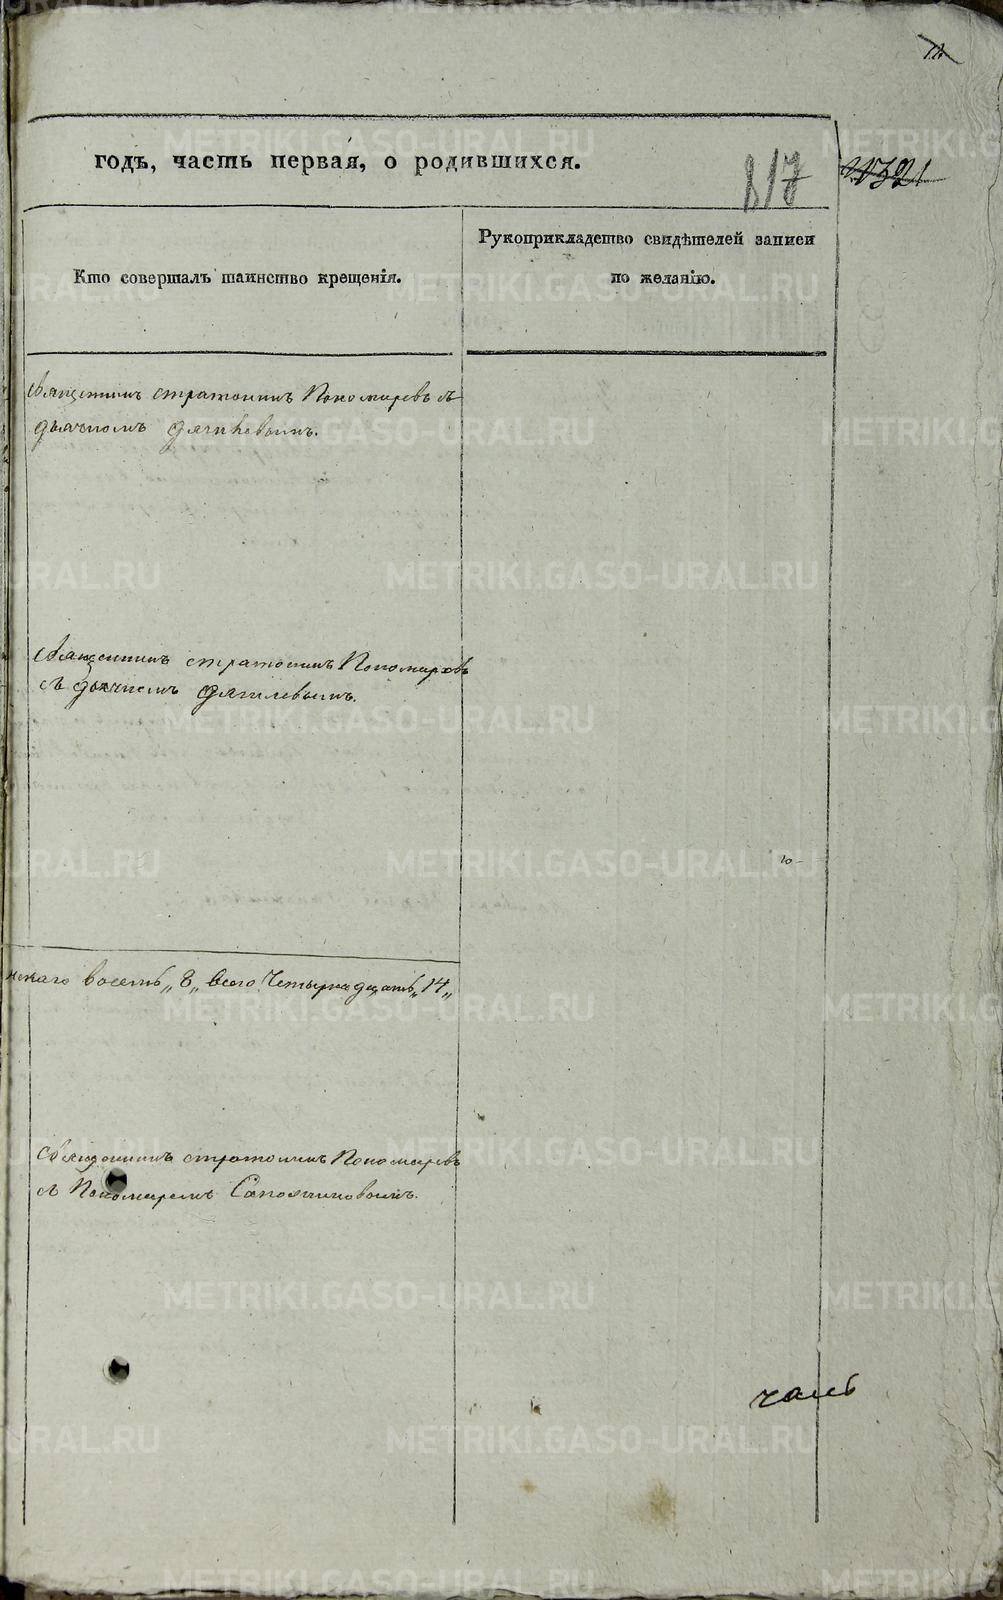 годъ, часть первая, о родившихся.
817
Кто совершалъ таинство крещенія.
Рукоприкладство свидѣтелей записи
по желанію.
Священникъ стратоникъ Пономаревъ съ
дьячкомъ Дягилевымъ.
Священникъ стратоникъ Пономаревъ
съ дьячкомъ Дягилевымъ.
нскаго восемь „8„ всего Четырнадцать „14„
Священникъ стратоникъ Пономаревъ
съ Пономаремъ Сапожниковымъ.
METRIKI.GASO-URAL.RU